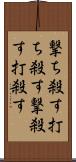 撃ち殺す打
ち殺す撃殺
す打殺す